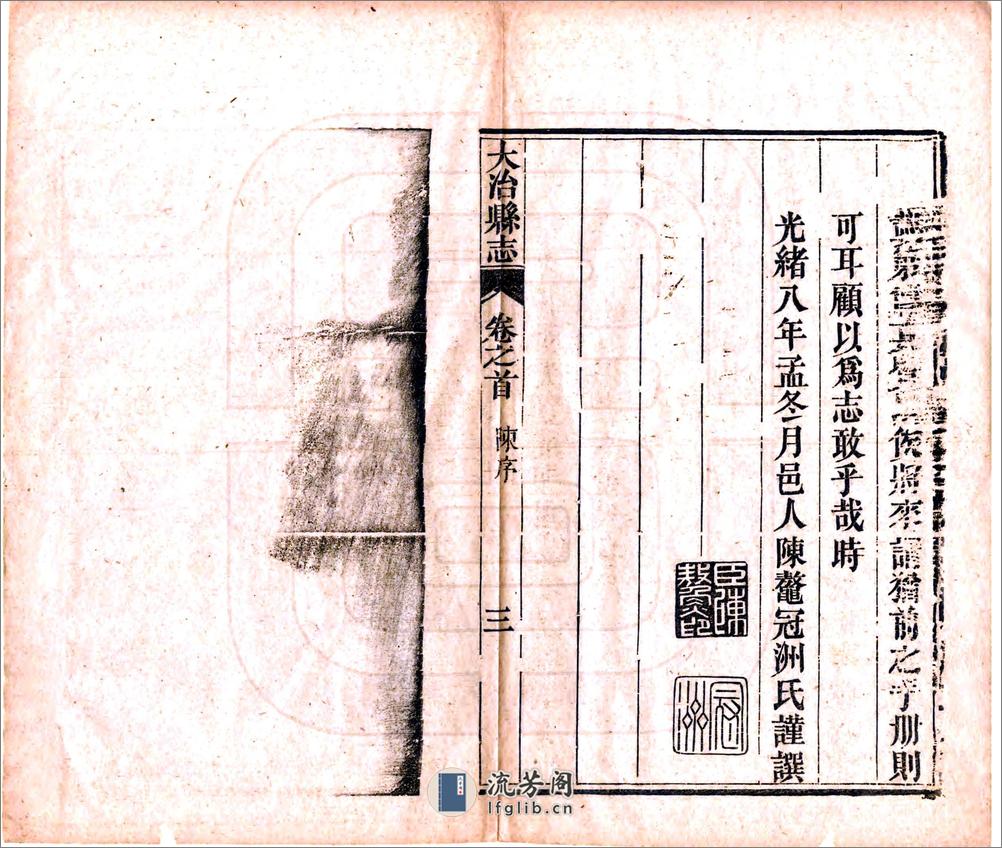 俟將來謂猶前之手册則
可耳顧以爲志敢乎哉時
光緒八年孟冬月邑人陳鼇冠洲氏謹譔
臣陳鼇印
冠洲
大冶縣志
卷之首
陳序
三
流芳阁
lfglib.cn